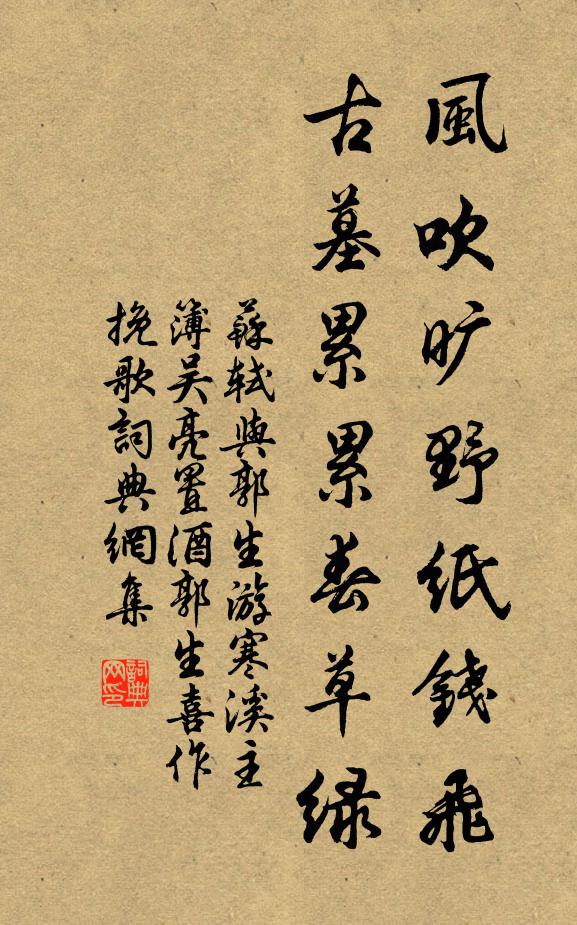 風吹旷野纸錢飛
古墓累累春草绿
蘇轼與郭生游寒溪主
簿吴亮置酒郭生喜作
挽歌詞典網集
詞典网印